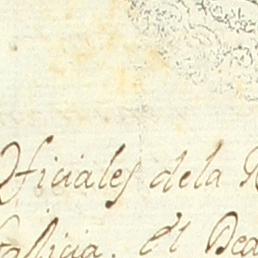 Oficiales dela
Galicia. el